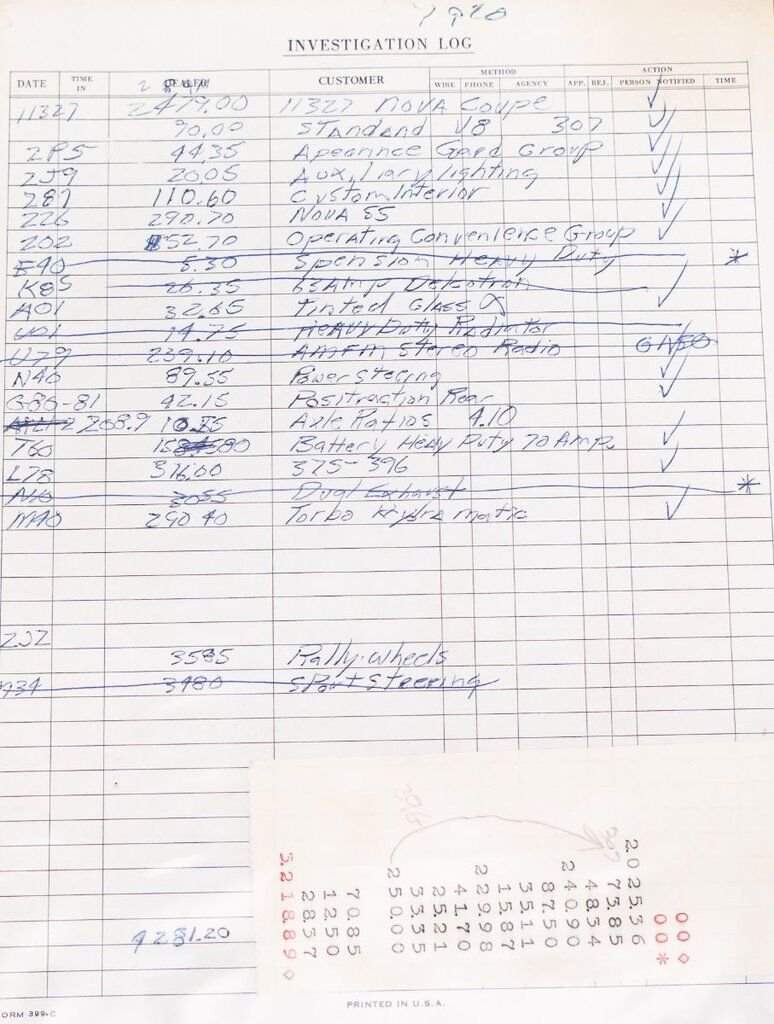 1970
INVESTIGATION LOG
DATE TIME IN DEALER CUSTOMER METHOD WIRE PHONE AGENCY ACTION APP. REJ. PERSON NOTIFIED TIME
11327 2479.00 11327 NOVA Coupe ✓
90.00 STANdANd V8 307 ✓
ZP5 44.35 Apearince Gard Group ✓
ZJ9 20.05 Auxiliary lighting ✓
Z87 110.60 Custom Interior ✓
Z26 290.70 NOVA SS ✓
ZQ2 52.70 Operating Convenience Group ✓
F40 5.30 Spension Heavy Duty *
K85 26.35 63 Amp Delcotron
A01 32.65 Tinted Glass ✓
V01 14.75 HEAVY Duty Radiator
U79 239.10 AMFM Stereo Radio
N40 89.55 Power Steering ✓
G80-81 42.15 Positraction Rear ✓
Axle Ratios 4.10
T60 15.80 Battery Heavy Duty 70 Amps ✓
L78 316.00 375-396 ✓
N10 3055 Dual Exhaust *
M40 290.40 Torbo Hydramatic ✓
ZJ7 3585 Rally-wheels
3480 Sport Steering
4281.20
00◇
00*
2025.36
73.85
48.54
240.90
87.50
35.11
15.87
229.98
41.70
25.21
33.35
250.00
70.85
12.50
28.37
3,218.89◇
396
307
FORM 399-C
PRINTED IN U.S.A.